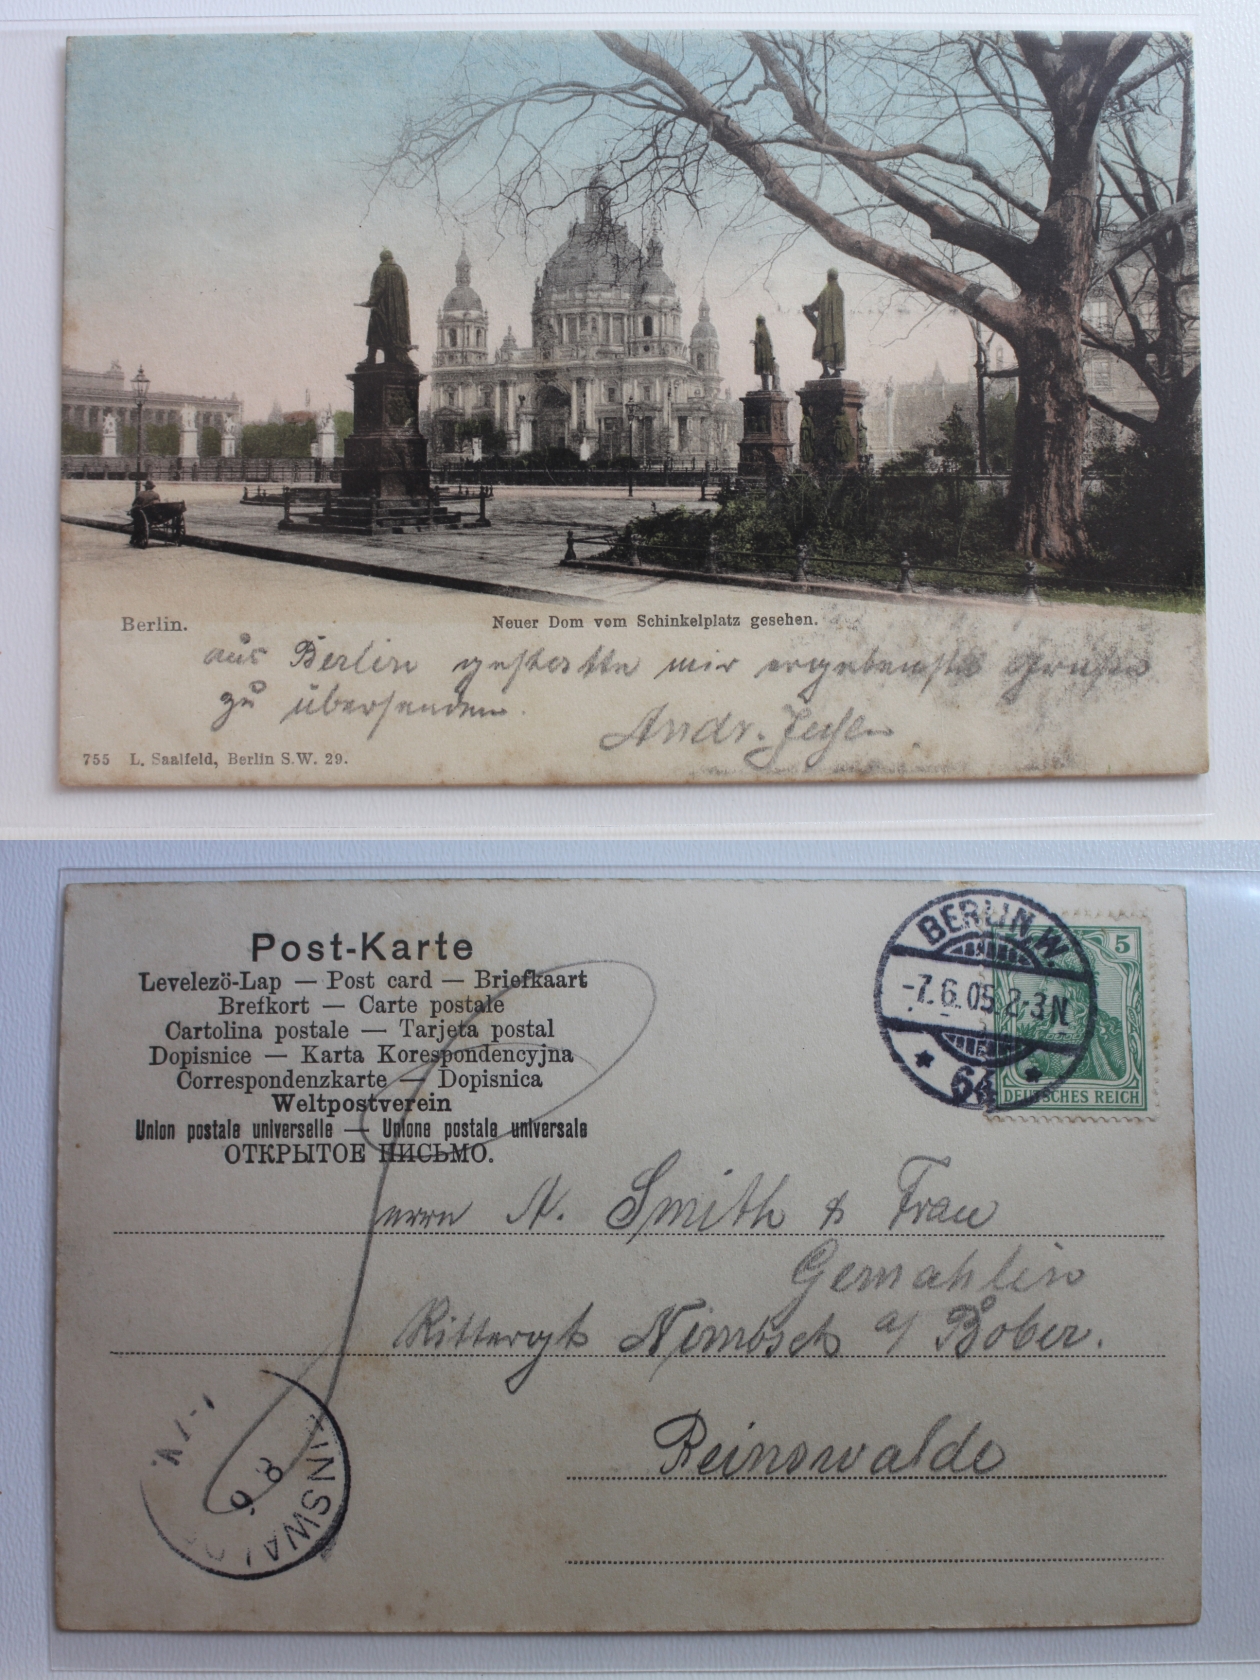 Berlin.
Neuer Dom vom Schinkelplatz gesehen.
aus Berlin gestatte mir ergebenste Grüße
zu übersenden.
Andr.
755 L. Saalfeld, Berlin S.W. 29.
Post-Karte
Levelezö-Lap — Post card — Briefkaart
Brefkort — Carte postale
Cartolina postale — Tarjeta postal
Dopisnice — Karta Korespondencyjna
Correspondenzkarte — Dopisnica
Weltpostverein
Union postale universelle — Unione postale universale
ОТКРЫТОЕ ПИСЬМО.
BERLIN W
-7.6.05.2-3N
64
5
DEUTSCHES REICH
Herrn A. Smith & Frau
Gemahlin
Rittergt Nimbsch a/ Bober.
Reinswalde
8 6
7-
NSWALD